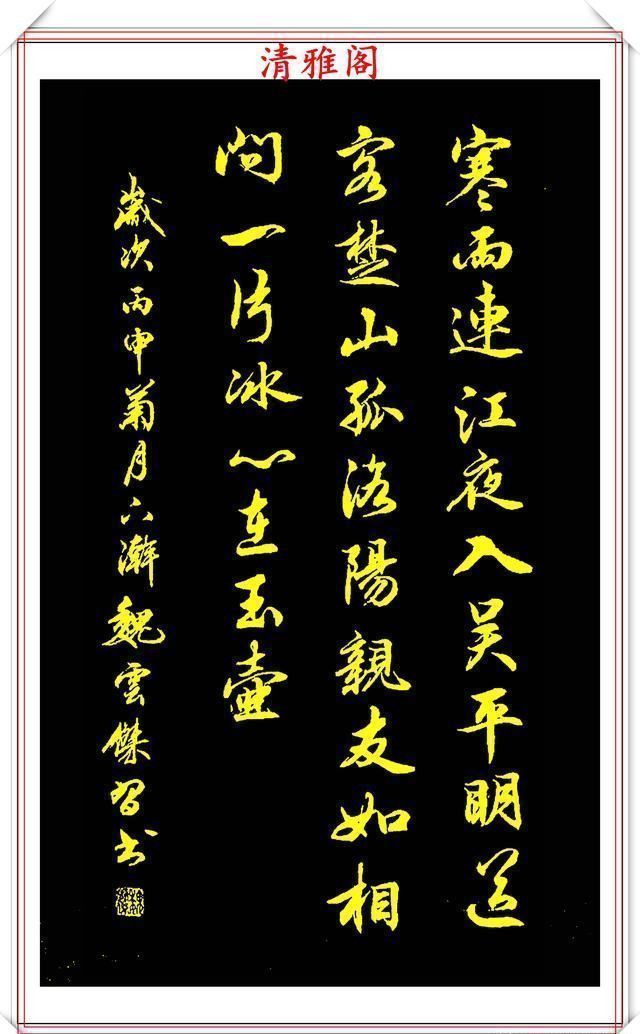 清雅阁
寒雨連江夜入吴平明送
客楚山孤洛陽親友如相
問一片冰心在玉壺
歲次丙申菊月下澣魏雲傑習書